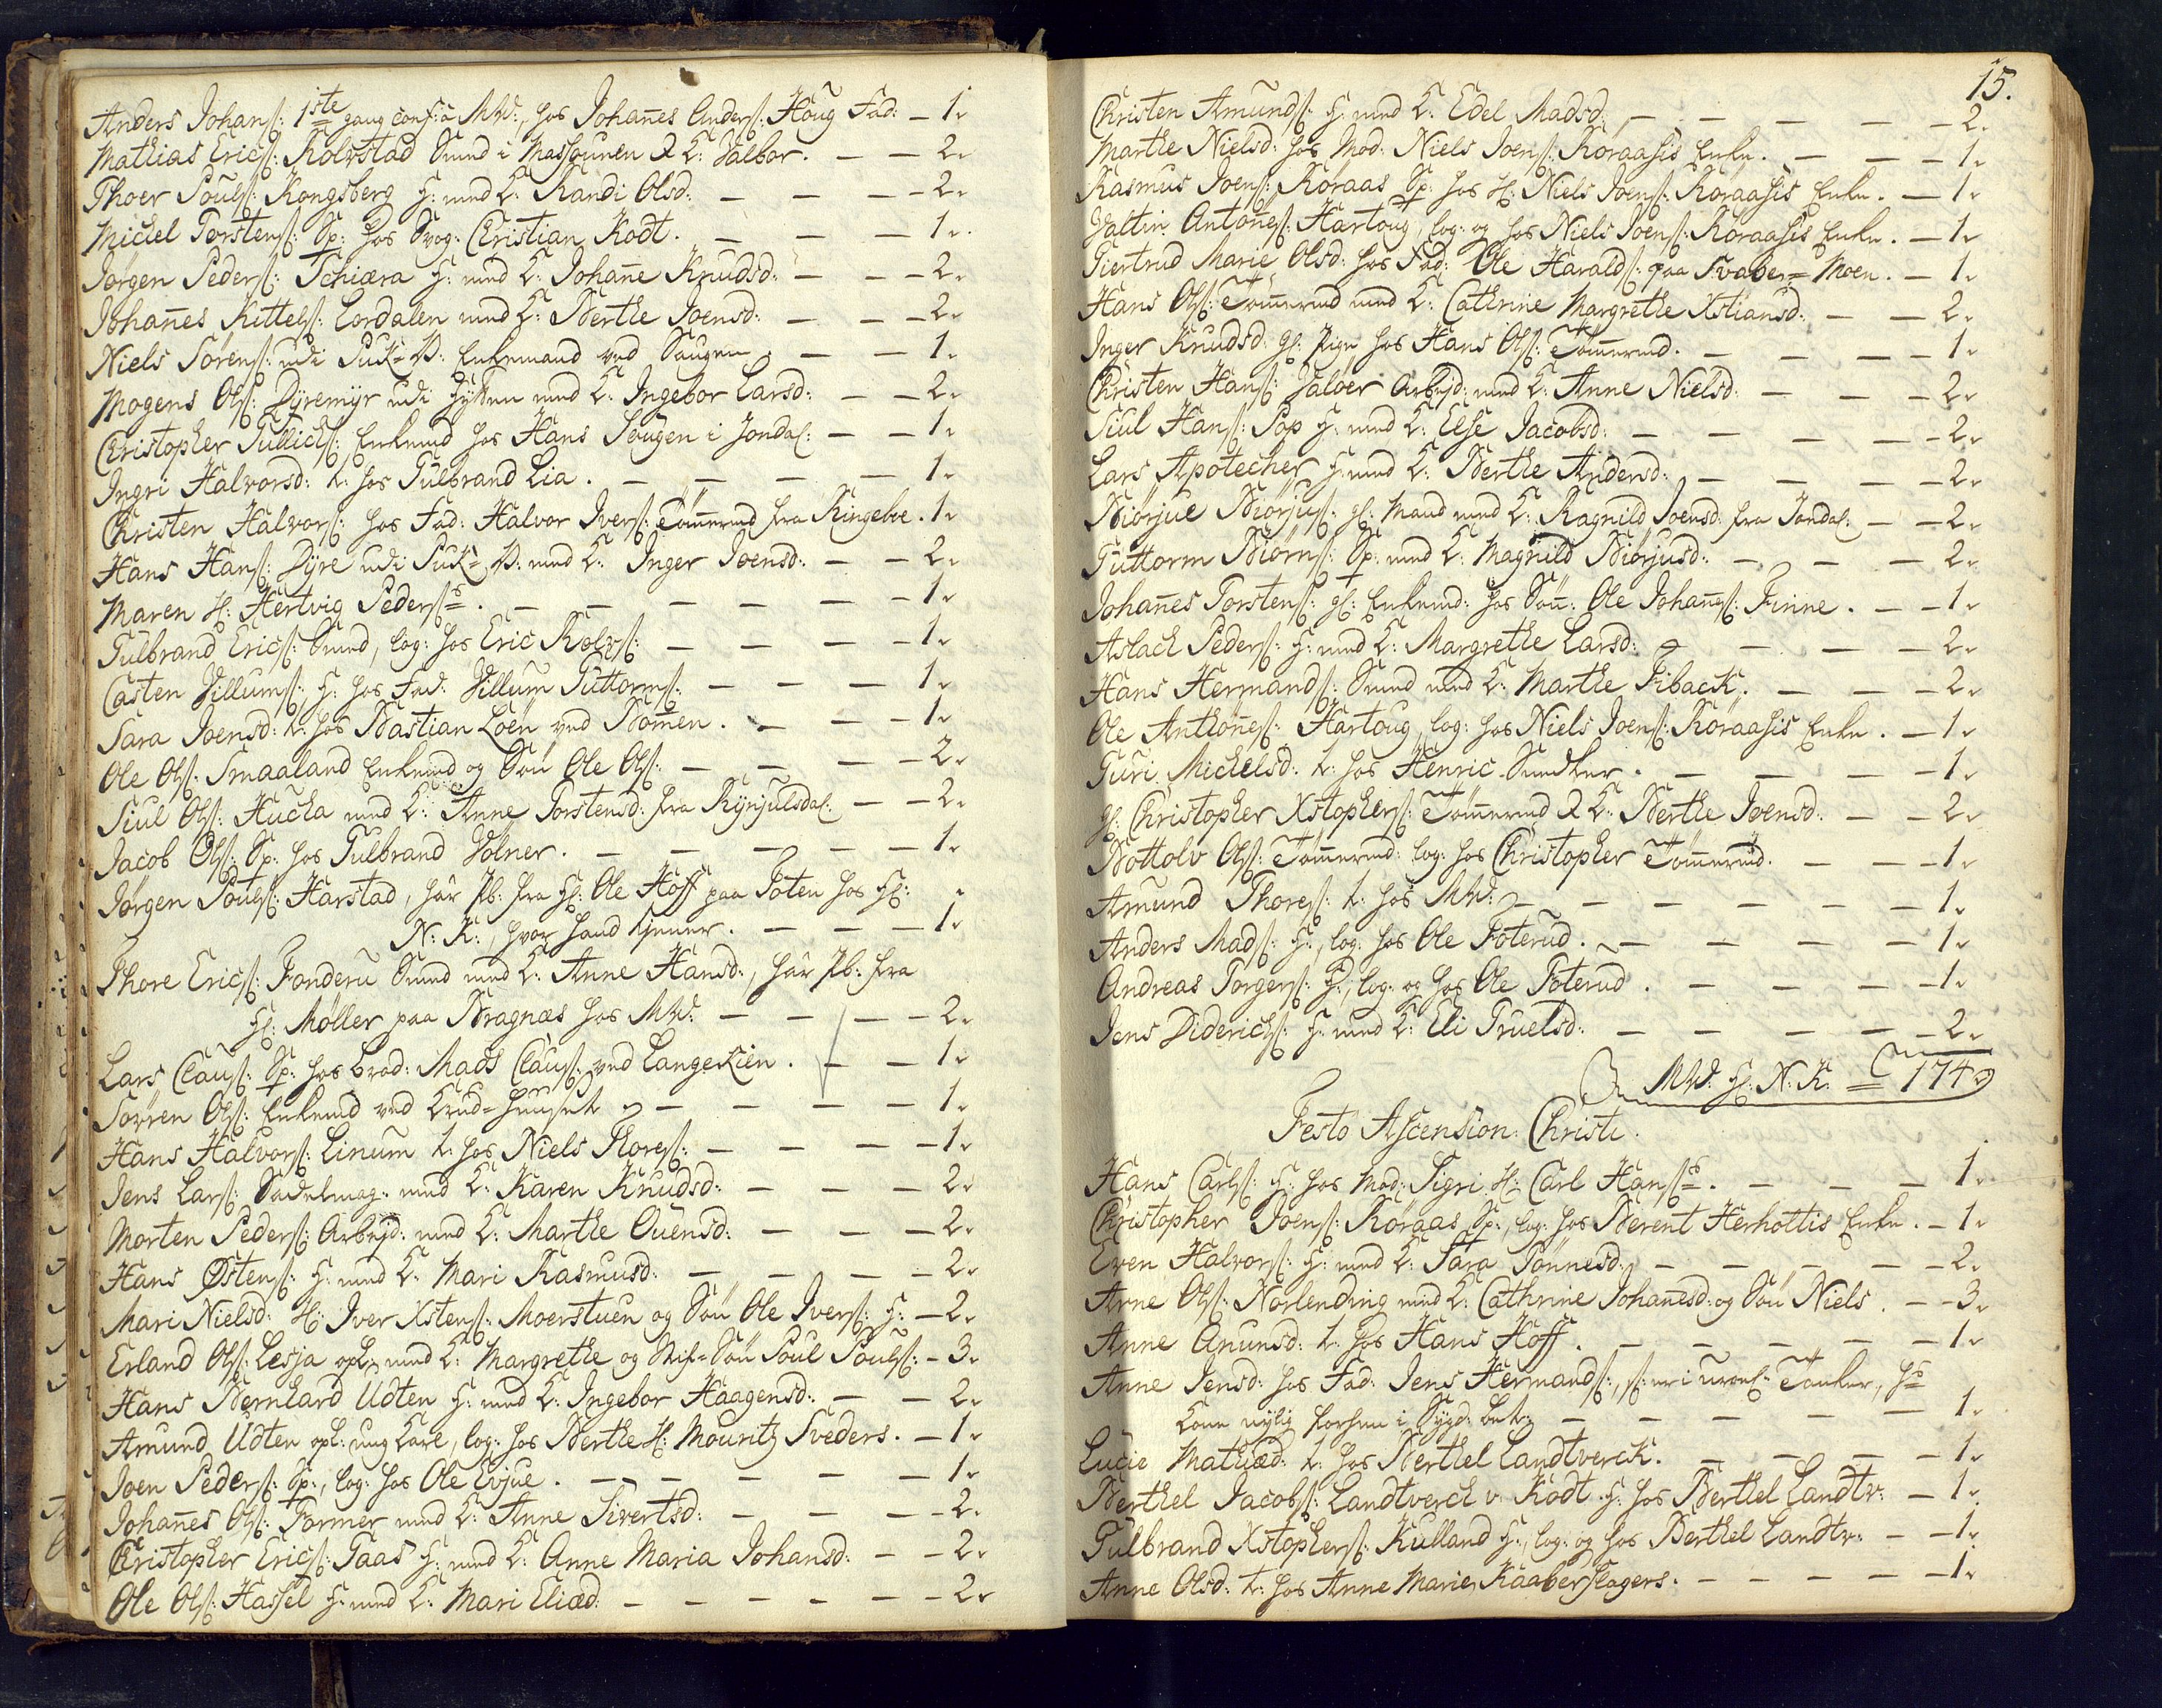 Anders Johans: 1ste gang conf: à MW:, hos Johan̅es Anders: Houg Fad: — 1.
Mathias Erics: Kolvstad Smed i Massounen & K: Valbor. — — 2.
Thoer Pouls: Kongsberg H: med K: Randi Olsd: — — — 2.
Michel Torstens: Sp: hos Svog: Christian Kodt. — — — 1.
Jørgen Peders: Tchiæra H: med K: Johan̅e Knudsd: — — — 2.
Johan̅es Kittels: Lordalen med K: Berthe Joensd: — — — 2.
Niels Sørens: udi Puk=V: Enkemand ved Saugen. — — 1.
Mogens Ols: Dyremyr udi Hytten med K: Ingebor Larsd: — — 2.
Christopher Tullichs: Enkemd hos Hans Saugen i Jondal: — — 1.
Ingri Halvorsd: t: hos Gulbrand Lia. — — — — 1.
Christen Halvors: hos Fad: Halvor Ivers: Tøm̅ermd fra Ringeboe. 1.
Hans Hans: Dyre udi Puk=V: med K: Inger Joensd: — — 2.
Maren H: Hertvig Pederss. — — — — — — 1.
Gulbrand Erics: Smed, log: hos Eric Kolvs: — — — — 1.
Casten Villums: H: hos Fad: Villum Guttorms: — — — 1.
Sara Joensd: t: hos Bastian Loen ved Bom̅en. — — — 1.
Ole Ols: Smaaland Enkemd og Søn Ole Ols: — — — — 2.
Siul Ols: Hucha med K: Anne Torstensd: fra Rynjulsdal: — — 2.
Jacob Ols: Sp: hos Gulbrand Volner. — — — — — 1.
Jørgen Pouls: Harstad, har Pb: fra Hr: Ole Hoff paa Toten hos Hr:
N: K:, hvor hand tjener. — — — 1.
Thore Erics: Fonderu Smed med K: Anne Hansd:, har Pb: fra
Hr: Møller paa Bragnæs hos MW: — — — — 2.
Lars Claus: Sp: hos Brod: Mads Claus: ved Langekien. — — 1.
Sørren Ols: Enkemd ved Krud=Huuset — — — — 1.
Hans Halvors: Linum t: hos Niels Thores: — — — — 1.
Jens Lars: Sadelmag: med K: Karen Knudsd: — — — 2.
Morten Peders: Arbejd: med K: Marthe Ouensd: — — — 2.
Hans Østens: H: med K: Mari Rasmusd: — — — — 2.
Mari Nielsd: H: Iver Xstens: Moerstuen og Søn Ole Ivers: H: — 2.
Erland Ols: Lesja opl: med K: Margrethe og Stif=Søn Poul Pouls: — 3.
Hans Bernhard Udten H: med K: Ingebor Haagensd: — — 2.
Amund Udten opl: ung Karl, log: hos Berthe H: Mouritz Sveders. — 1.
Joen Peders: Sp:, log: hos Ole Evjue. — — — — — 1.
Johan̅es Ols: Former med K: Anne Sivertsd: — — — — 2.
Christopher Erics: Gaas H: med K: Anne Maria Johansd: — — 2.
Ole Ols: Hassel H: med K: Mari Eliæd: — — — — — 2.
15.
Christen Amunds: H: med K: Edel Madsd: — — — — — 2.
Marthe Nielsd: hos Mod: Niels Joens: Røraasis Enke. — — — 1.
Rasmus Joens: Røraas Sp: hos H: Niels Joens: Røraasis Enke. — 1.
Valtin Antones: Hartoug, log: og hos Niels Joens: Røraasis Enke. — 1.
Giertrud Marie Olsd: hos Fad: Ole Haralds: paa Svaber=Moen. — 1.
Hans Ols: Tøm̅ermd med K: Cathrine Margrethe Xstiansd: — — 2.
Inger Knudsd: gl: Pige hos Hans Ols: Tøm̅ermd. — — — — 1.
Christen Hans: Valøer Arbejd: med K: Anne Nielsd: — — — 2.
Siul Hans: Pop H: med K: Else Jacobsd: — — — — — 2.
Lars Apotecher H: med K: Berthe Andersd: — — — — 2.
Biørjue Biørjus: gl: Mand med K: Ragnild Joensd: fra Jondal: — — 2.
Guttorm Biørns: Sp: med K: Magnild Biørjusd: — — — 2.
Johan̅es Torstens: gl: Enkemd: hos Søn: Ole Johan̅es: Finne. — — 1.
Aslach Peders: H: med K: Margrethe Larsd: — — — — 2.
Hans Hermands: Smed med K: Marthe Fiback. — — — 2.
Ole Anthones: Hartoug, log: hos Niels Joens: Røraasis Enke. — 1.
Guri Michelsd: t: hos Henric Snedker. — — — — — 1.
gl: Christopher Xstophers: Tøm̅ermd & K: Berthe Joensd: — — 2.
Bottolv Ols: Tøm̅ermd: log: hos Christopher Tøm̅ermd. — — — 1.
Amund Thores: t: hos MW: — — — — — — 1.
Anders Mads: H:, log: hos Ole Foterud. — — — — — 1.
Andreas Torgers: H:, log: og hos Ole Foterud. — — — — 1.
Jens Diderichs: H: med K: Eli Truelsd: — — — — — 2.
MW: Hr: N: K: = 174
Festo Ascension: Christi.
Hans Carls: H: hos Mod: Sigri H: Carl Hanss. — — — — 1.
Christopher Joens: Røraas Sp:, log: hos Berent Herhottis Enke. — 1.
Even Halvors: H: med K: Sara Tonnesd: — — — — — 2.
Arne Ols: Norlending med K: Cathrine Johan̅esd: og Søn Niels. — — 3.
Anne Anunsd: t: hos Hans Hoff. — — — — — — 1.
Anne Jensd: hos Fad: Jens Hermands:,
— — — — — — 1.
Lucie Mathiæd: t: hos Berthel Landtverck. — — — — 1.
Berthel Jacobs: Landtverck v. Kodt H: hos Berthel Landtv: — 1.
Gulbrand Xstophers: Kulland H:, log: og hos Berthel Landtv: — — 1.
Anne Olsd: t: hos Anne Marie Kaaberslagers. — — — — — 1.